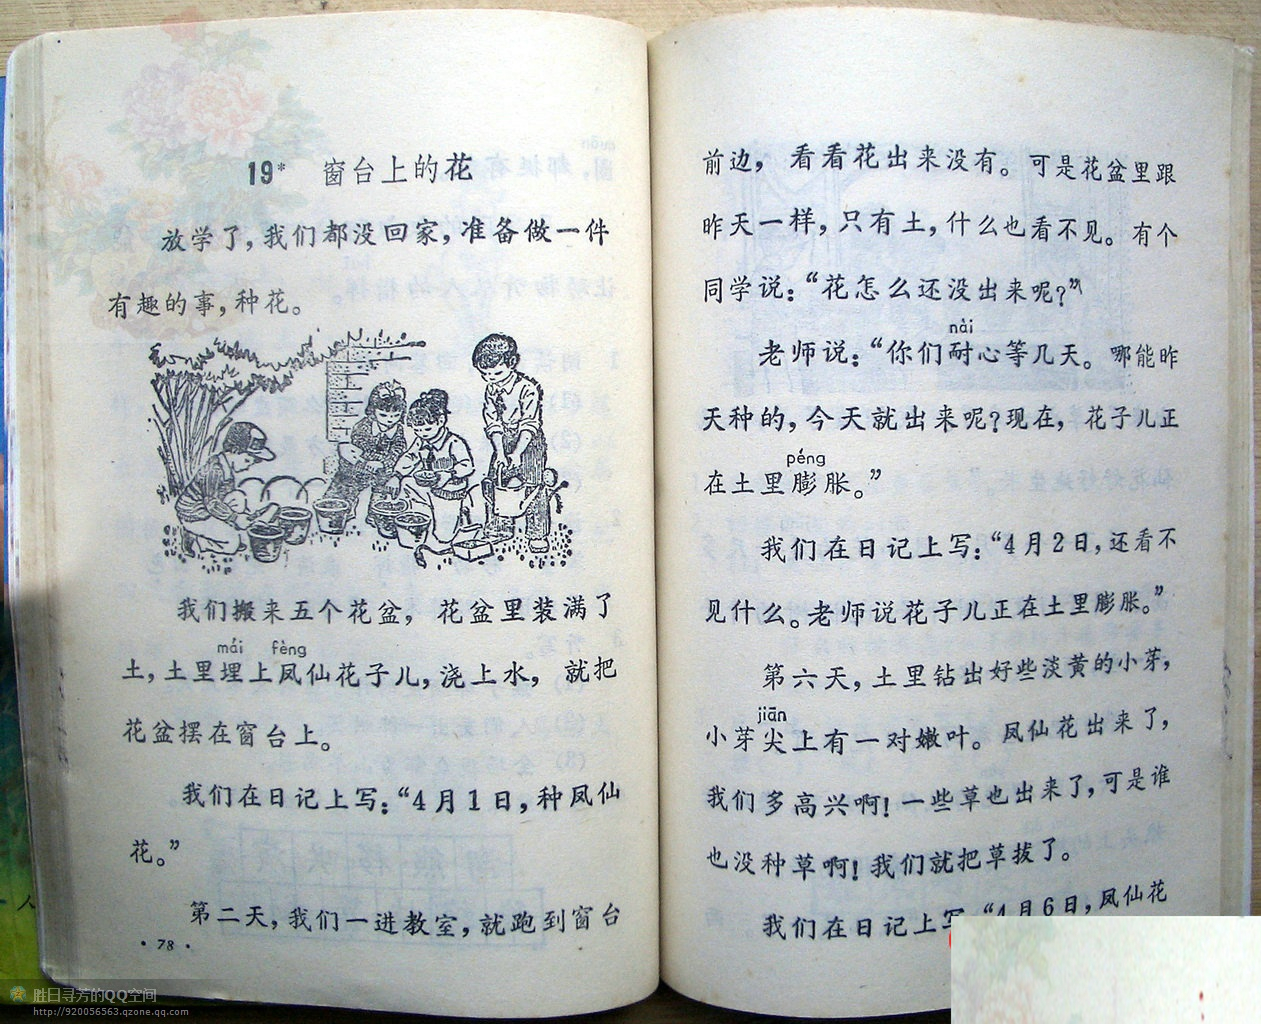 19* 窗台上的花
放学了，我们都没回家，准备做一件
有趣的事，种花。
我们搬来五个花盆，花盆里装满了
mái fèng
土，土里埋上凤仙花子儿，浇上水，就把
花盆摆在窗台上。
我们在日记上写：“4月1日，种凤仙
花。”
第二天，我们一进教室，就跑到窗台
·78·
前边，看看花出来没有。可是花盆里跟
昨天一样，只有土，什么也看不见。有个
同学说：“花怎么还没出来呢？”
nài
老师说：“你们耐心等几天。哪能昨
天种的，今天就出来呢？现在，花子儿正
péng
在土里膨胀。”
我们在日记上写：“4月2日，还看不
见什么。老师说花子儿正在土里膨胀。”
第六天，土里钻出好些淡黄的小芽，
jiān
小芽尖上有一对嫩叶。凤仙花出来了，
我们多高兴啊！一些草也出来了，可是谁
也没种草啊！我们就把草拔了。
我们在日记上写：“4月6日，凤仙花
胜日寻芳的QQ空间
http://920056563.qzone.qq.com